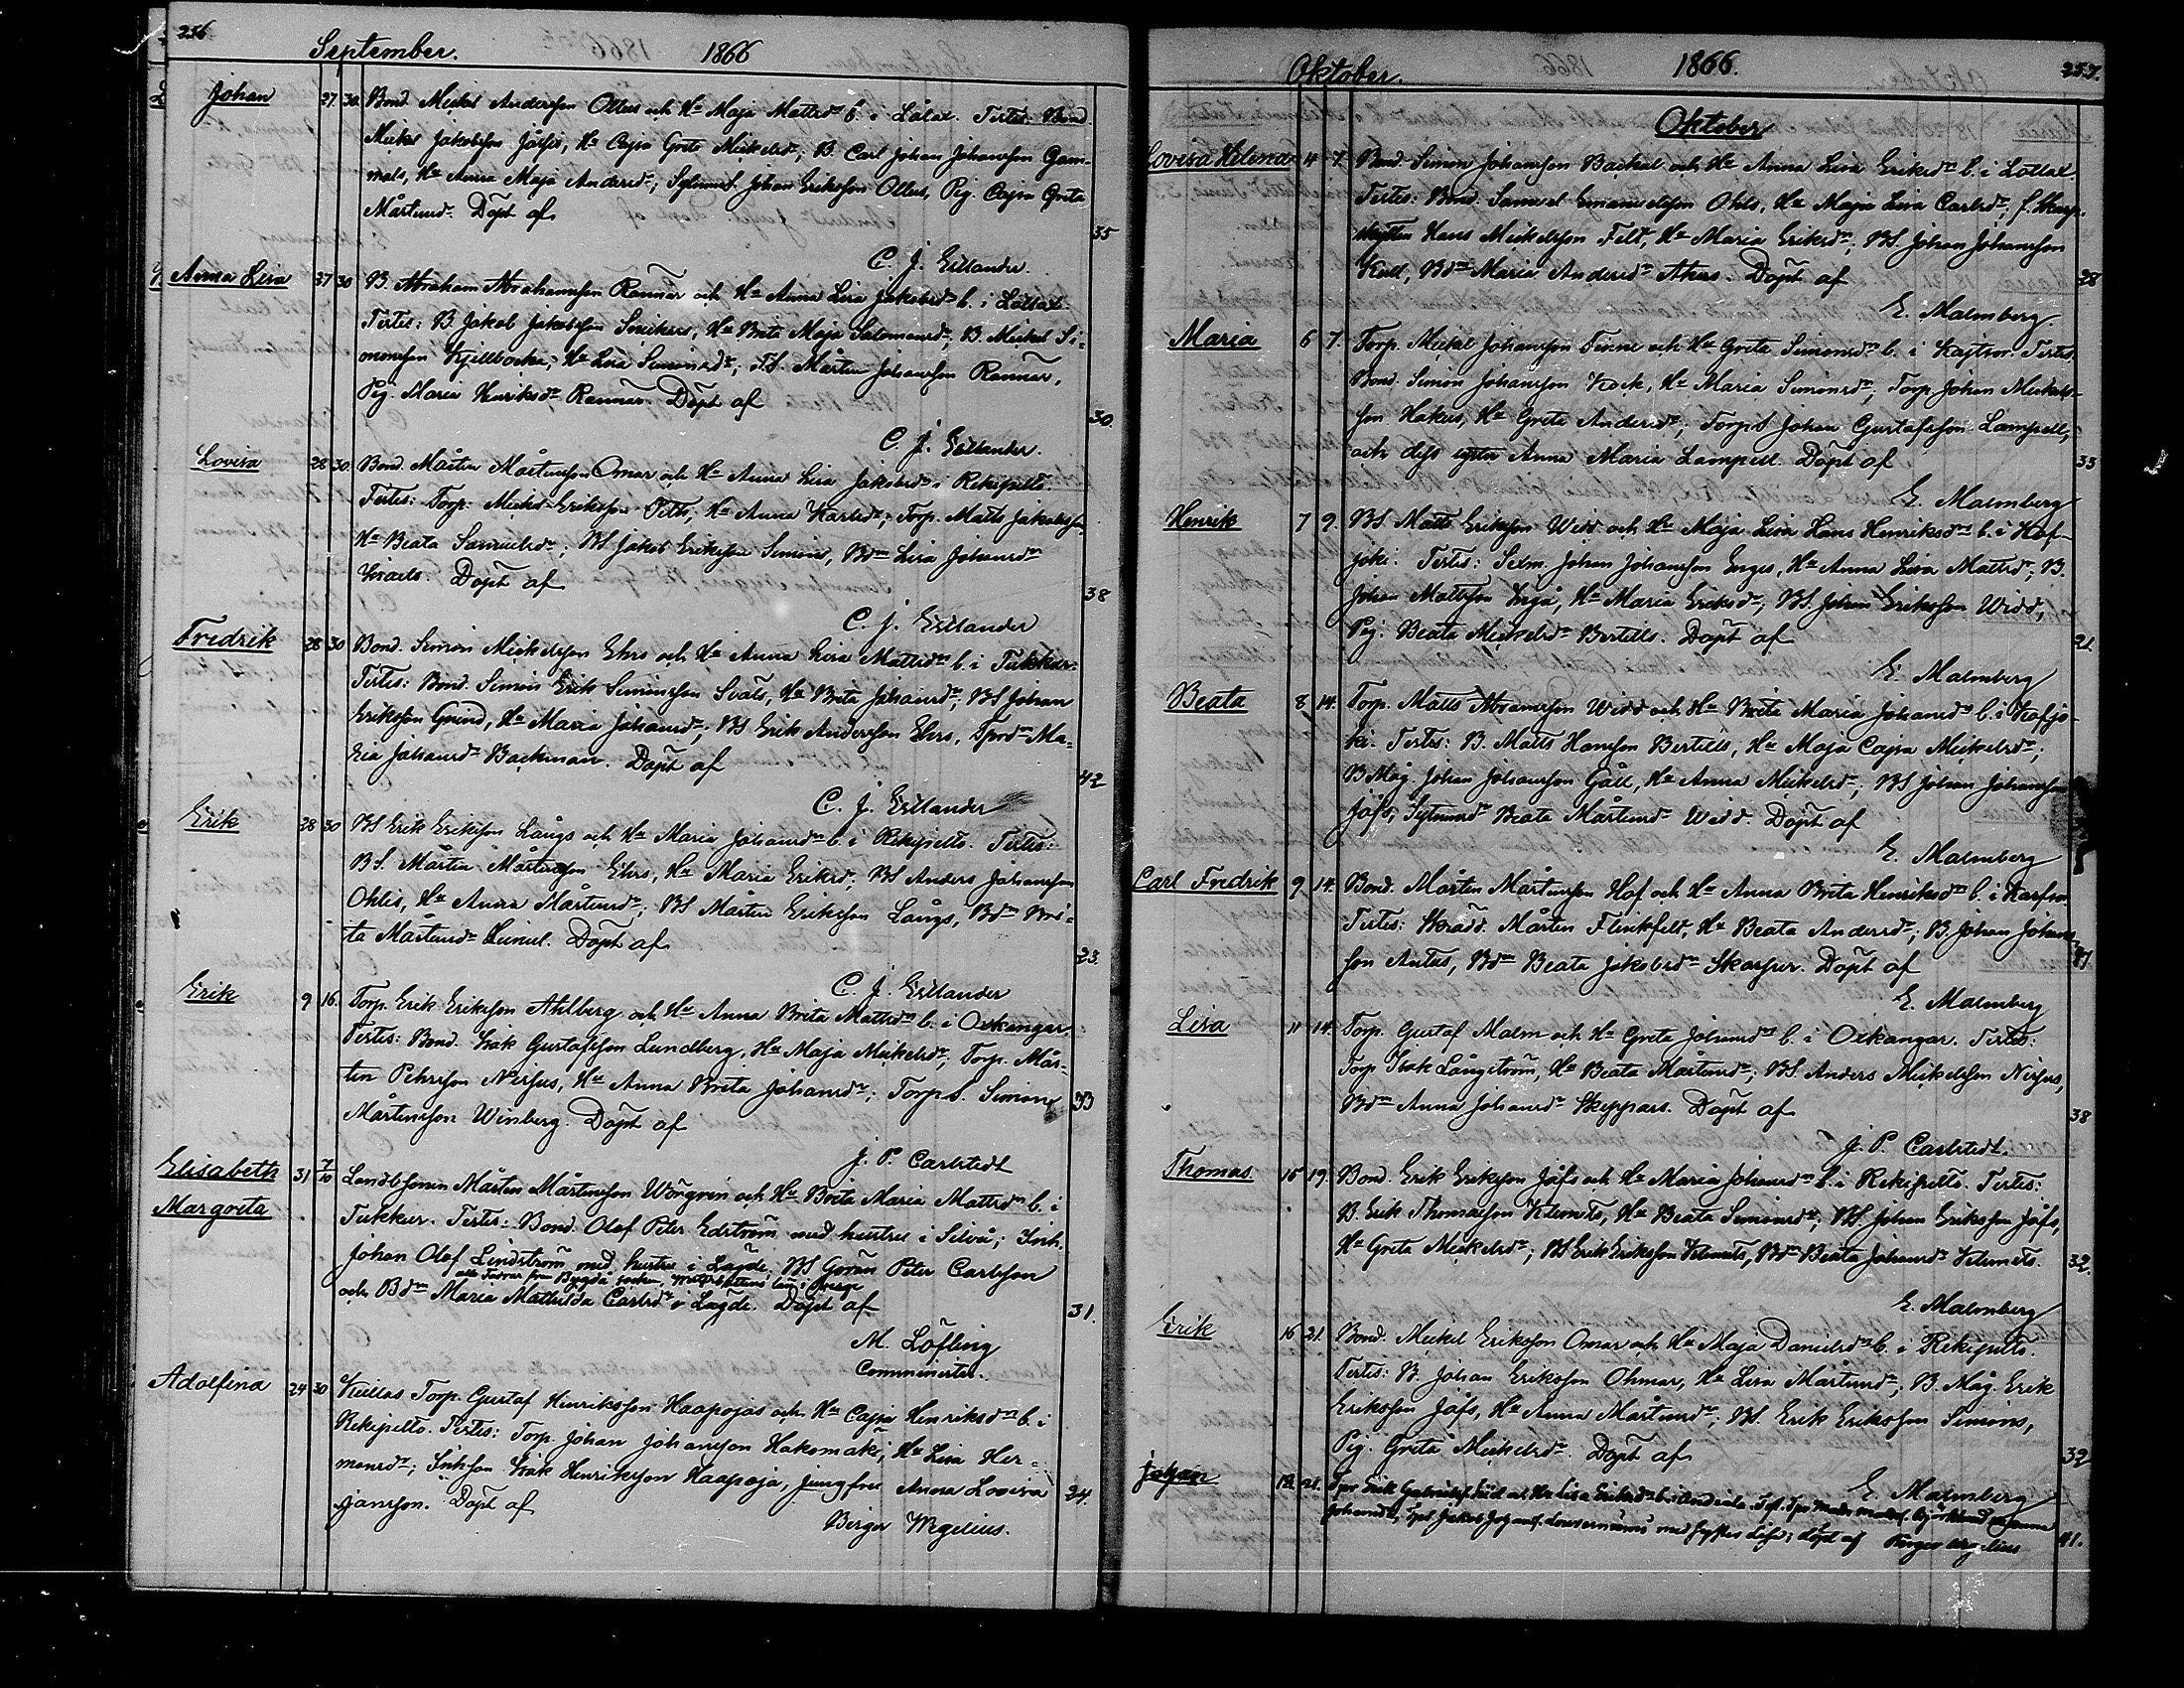 256
September. 1866
Johan 27. 30. Bond. Mickel Andersson Ollus och Hu Maja Mattsdr b. i Lålax. Testes: Bond.
Mickel Jakobsson Jåfsis, Hu Cajsa Greta Mickelsdr; B. Carl Johan Johansson Gam-
mals, Hu Anna Maja Andersdr; Sytnings. Johan Eriksson Ollus, Pig. Cajsa Greta
Mårtensdr. Döpt af
35
C. J. Estlander.
Anna Lisa 27 30 B. Abraham Abrahamsson Rannar och Hu Anna Lisa Jakobsdr b. i Lålax.
Testes: B. Jakob Jakobsson Snickars, Hu Brita Maja Salomonsdr, B. Mickel Si-
monsson Kjellbacka, Hu Lisa Simonsdr; T.S. Mårten Johansson Rannar,
Pig. Maria Henriksdr Rannar. Döpt af
30.
C. J. Estlander.
Lovisa 28 30. Bond. Mårten Mårtensson Omar och Hu Anna Lisa Jakobsdr i Rekipelto.
Testes: Torp. Mickel Eriksson Pitts, Hu Anna Karlsdr; Torp. Matts Jakobsson,
Hu Beata Samuelsdr; BS Jakob Eriksson Simons, Bdr Lisa Johansdr
Israels. Döpt af
38
C. J. Estlander
Fredrik 28 30 Bond. Simon Mickelsson Ehrs och Hu Anna Lisa Mattsdr b. i Tukkur.
Testes: Bond. Simon Erik Simonsson Svals, Hu Brita Johansdr; BS Johan
Eriksson Grind, Hu Maria Johansdr; BS Erik Andersson Ehrs, Tprdr Ma-
ria Johansdr Backman. Döpt af
42
C. J. Estlander
Erik 28 30 BS Erik Eriksson Långs och Hu Maria Johansdr b. i Rekipelto. Testes:
BS. Mårten Mårtensson Ehrs, Hu Maria Eriksdr; BS Anders Johansson
Ohlis, Hu Anna Mårtensdr; BS Mårten Eriksson Långs, Bdr Bri-
ta Mårtensdr Döpt af
23.
C. J. Estlander
Erik 9 16. Torp. Erik Eriksson Ahlberg och Hu Anna Brita Mattsdr b. i Oxkangar.
Testes: Bond. Isak Gustafsson Lundberg, Hu Maja Mickelsdr; Torp. Mår-
ten Pehrsson Nissus, Hu Anna Brita Johansdr; Torp.s. Simon
Mårtensson Winberg. Döpt af
33
J. P. Carlstedt
Elisabeth 31 7/10 Landbsonen Mårten Mårtensson Wörgren och Hu Brita Maria Mattsdr b. i
Margreta Tukkur. Testes: Bond. Olof Peter Edström med hustru i Silvå; Inh.
Johan Olof Lindström med hustru i Lagde; BS Göran Peter Carlsson
alla Faddrar från Bygdå socken, Westerbottens län i Sverge
och Bdr Maria Mathilda Carlsdr i Lagde. Döpt af
31.
M. Löfling
Comminister.
Adolfina 24 30 Kullas Torp. Gustaf Henriksson Haapojas och Hu Cajsa Henriksdr b. i
Rekipelto. Testes: Torp. Johan Johansson Hakomäki, Hu Lisa Her-
mansdr; Inhson Isak Henriksson Haapoja, jungfru Anna Lovisa
Jansson. Döpt af
24.
Birger Wegelius.
Oktober. 1866. 257.
Oktober
Lovisa Helena 4 7. Bond. Simon Johansson Backal och Hu Anna Lisa Eriksdr b. i Lållax.
Testes: Bond. Samuel Emanuelsson Ohls, Hu Maja Lisa Carlsdr; f. Skarp-
skytten Hans Mickelsson Felt, Hu Maria Eriksdr; BS. Johan Johansson
Kull, Bdr Maria Andersdr Akas. Döpt af
28
E. Malmberg.
Maria 6 7. Torp. Mickel Johansson Finne och Hu Greta Simonsdr b. i Kajtsor. Testes
Bond. Simon Johansson Kock, Hu Maria Simonsdr; Torp. Johan Mickels-
son Hakus, Hu Greta Andersdr; Torp.s Johan Gustafsson Lampell,
och dess syster Anna Maria Lampell. Döpt af
33
E. Malmberg
Henrik 7 9. BS. Matts Eriksson Widd och Hu Maja Lisa Hans Henriksdr b. i Kof-
joki. Testes: Sexm. Johan Johansson Enges, Hu Anna Lisa Mattsdr; B.
Johan Mattsson Ingå, Hu Maria Eriksdr; BS. Johan Eriksson Widd,
Pig. Beata Mickelsdr Bertills. Döpt af
21.
E. Malmberg
Beata 8 14. Torp. Matts Abramsson Widd och Hu Brita Maria Johansdr b. i Kofjo-
ki. Testes: B. Matts Hansson Bertills, Hu Maja Cajsa Mickelsdr;
B Måg. Johan Johansson Gåll, Hu Anna Mickelsdr; BS Johan Johansson
Jåfs, Sytnings Beata Mårtensdr Widd. Döpt af
E. Malmberg
Carl Fredrik 9. 14. Bond. Mårten Mårtensson Hof och Hu Anna Brita Henriksdr b. i Karfsor
Testes: Skrädd. Mårten Flinkfelt, Hu Beata Andersdr; B. Johan Johans-
son Antus, Bdr Beata Jakobsdr Skarpur. Döpt af
E. Malmberg
Lisa 11 14. Torp. Gustaf Malm och Hu Greta Johansdr b. i Oxkangar. Testes:
Torp Isak Långström, Hu Beata Mårtensdr; BS. Anders Mickelsson Nissus,
Bdr Anna Johansdr Skeppars. Döpt af
38
J. P. Carlstedt.
Thomas. 15 19. Bond. Erik Eriksson Jåfs och Hu Maria Johansdr b. i Rekipelto. Testes:
B. Erik Thomasson Klemets, Hu Beata Simonsdr; BS. Johan Eriksson Jåfs,
Hu Greta Mickelsdr; BS Erik Eriksson Klemets, Bdr Beata Johansdr Klemets.
32.
E. Malmberg
Erik 16 21. Bond. Mickel Eriksson Omar och Hu Maja Danielsdr b. i Rekipelto.
Testes: B. Johan Eriksson Ohmar, Hu Lisa Mårtensdr; B. Måg. Erik
Eriksson Jåfs, Hu Anna Mårtensdr; BS. Erik Eriksson Simons,
Pig. Greta Mickelsdr. Döpt af
32
E. Malmberg
Johan 18. 21. Tpr Erik Gabrielsf. och Hu Lisa Eriksdr b. i Andiala. Test. Tpr Matts Mattsf. Björklund
Johansdr, Tps. Jakob Johansf. med Lisa; döpt af Birger Wegelius
41.